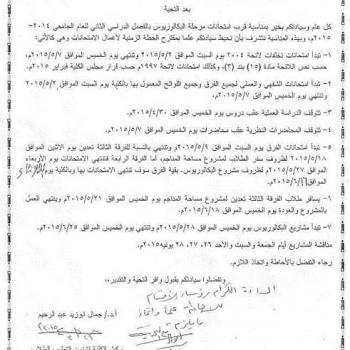 بعد التحية
كل عام وسيادتكم بخير بمناسبة قرب امتحانات مرحلة البكالوريوس بالفصل الدراسي الثاني للعام الجامعي ٢٠١٤-
٢٠١٥م، وبهذه المناسبة نتشرف بأن نحيط سيادتكم علما بمقترح الخطة الزمنية لأعمال الامتحانات وهى كالآتي:
١- تبدأ امتحانات تخلفات لائحة ٢٠٠٤ يوم السبت الموافق ٢٠١٥/٥/٢ وتنتهي يوم الخميس الموافق ٢٠١٥/٥/٧م،
حسب نص اللائحة مادة (١٥) بند (٣)، وكذلك امتحانات لائحة ١٩٩٧م حسب قرار مجلس الكلية فبراير ٢٠١٥م.
٢- تبدأ امتحانات الشفهي والعملي لجميع الفرق وجميع اللوائح المعمول بها بالكلية يوم السبت الموافق ٢٠١٥/٥/٢م
وتنتهي يوم الخميس الموافق ٢٠١٥/٥/٧م.
٣- تتوقف الدراسة العملية عقب دروس يوم الخميس الموافق ٢٠١٥/٤/٣٠م.
٤- تتوقف المحاضرات النظرية عقب محاضرات يوم الخميس الموافق ٢٠١٥/٥/٧م.
٥- تبدأ امتحانات الفرق يوم السبت الموافق ٢٠١٥/٥/٩م وتنتهي بالنسبة للفرقة الثالثة تعدين يوم الاثنين الموافق
٢٠١٥/٥/١٨م لظروف سفر الطلاب لمشروع مساحة المناجم، أما الفرقة الرابعة فتنتهي الامتحانات يوم الأربعاء
الموافق ٢٠١٥/٥/٢٧م لظروف مشروع البكالوريوس. بقية الفرق سوف تنتهي الامتحانات بها وبالكلية يوم
الموافق
٦- يسافر طلاب الفرقة الثالثة تعدين لمشروع مساحة المناجم يوم الخميس الموافق ٢٠١٥/٥/٢١م وينتهي العمل
بالمشروع والعودة يوم الخميس الموافق ٢٠١٥/٦/١٨م.
٧- تبدأ مشاريع البكالوريوس يوم الخميس الموافق ٢٠١٥/٥/٢٨م، وتنتهي يوم الخميس الموافق ٢٠١٥/٦/٢٥م.
مناقشة المشاريع أيام الجمعة والسبت والاحد ٢٦، ٢٧، ٢٨ يونيه ٢٠١٥م.
رجاء التفضل بالأحاطة واتخاذ اللازم.
وتفضلوا سيادتكم بقبول وافر التحية والتقدير،،
السادة الكرام رؤساء الأقسام
أ.د/ جمال ابوزيد عبد الرحيم